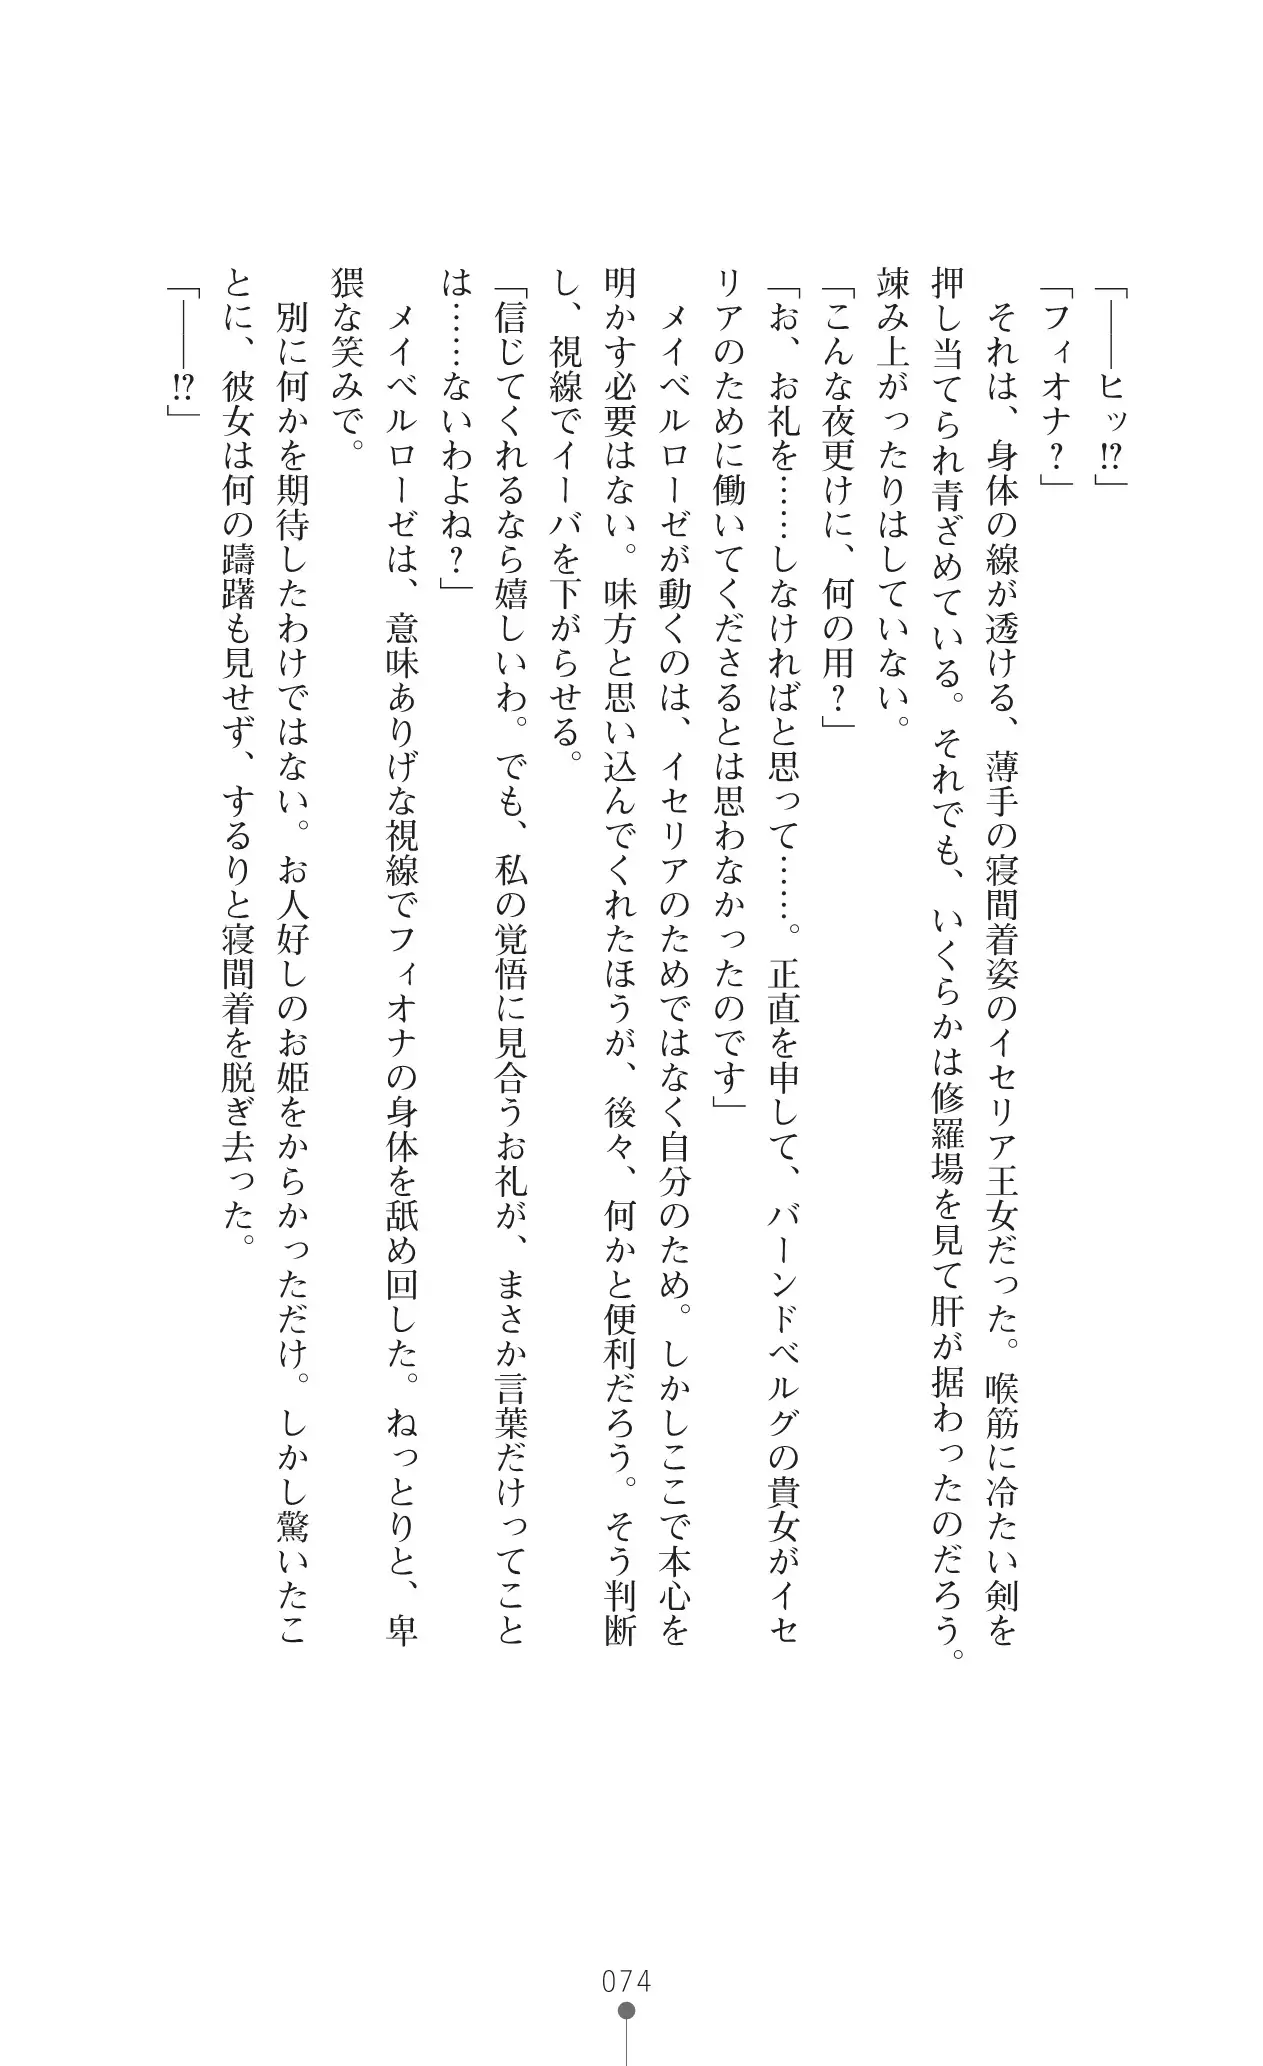 「――ヒッ!?」
「フィオナ？」
　それは、身体の線が透ける、薄手の寝間着姿のイセリア王女だった。喉筋に冷たい剣を
押し当てられ青ざめている。それでも、いくらかは修羅場を見て肝が据わったのだろう。
竦み上がったりはしていない。
「こんな夜更けに、何の用？」
「お、お礼を……しなければと思って……。正直を申して、バーンドベルグの貴女がイセ
リアのために働いてくださるとは思わなかったのです」
　メイベルローゼが動くのは、イセリアのためではなく自分のため。しかしここで本心を
明かす必要はない。味方と思い込んでくれたほうが、後々、何かと便利だろう。そう判断
し、視線でイーバを下がらせる。
「信じてくれるなら嬉しいわ。でも、私の覚悟に見合うお礼が、まさか言葉だけってこと
は……ないわよね？」
　メイベルローゼは、意味ありげな視線でフィオナの身体を舐め回した。ねっとりと、卑
猥な笑みで。
　別に何かを期待したわけではない。お人好しのお姫をからかっただけ。しかし驚いたこ
とに、彼女は何の躊躇も見せず、するりと寝間着を脱ぎ去った。
「――!?」
074